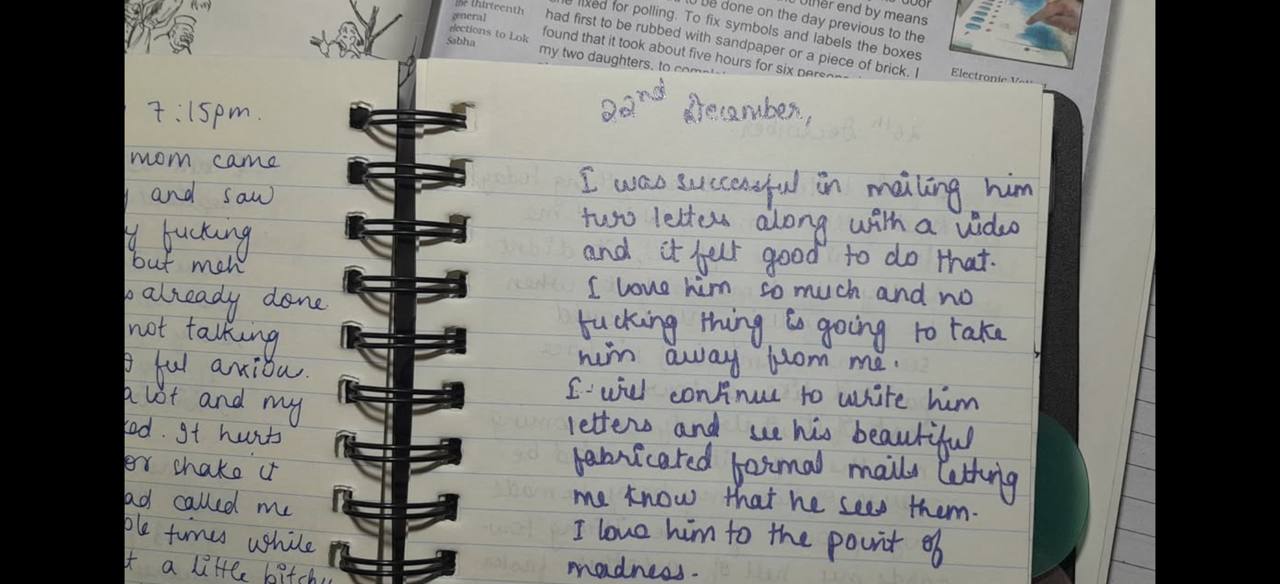 the thirteenth
general
elections to Lok
Sabha
fixed for polling. To fix symbols and labels the boxes
had first to be rubbed with sandpaper or a piece of brick. I
found that it took about five hours for six
my two daughters, to
to be done on the day previous to the
other end by means
door
Electronic
7:15pm.
mom came
and saw
fucking
but meh
already done
not talking
ful
a lot and my
It hurts
or shake it
called me
times while
a little bitchy
22nd December,
I was successful in mailing him
two letters along with a video
and it felt good to do that.
I love him so much and no
fucking thing is going to take
him away from me.
I will continue to write him
letters and see his beautiful
fabricated formal mails letting
me know that he sees them.
I love him to the point of
madness.